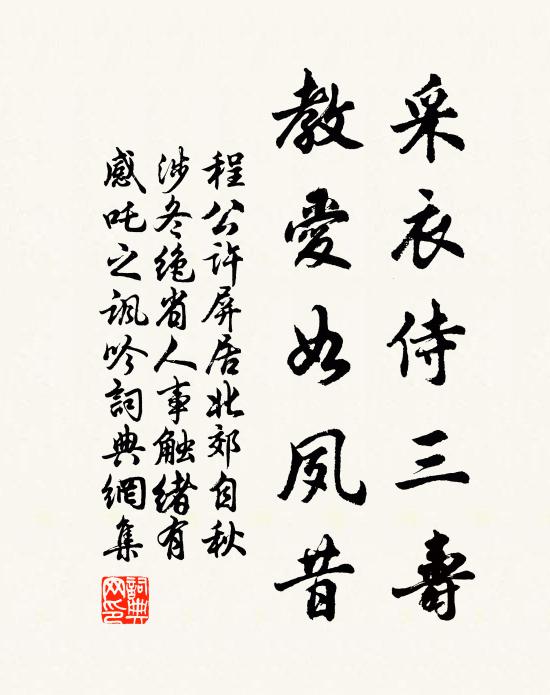 采衣侍三壽
教愛如夙昔
程公許屏居北郊自秋
涉冬絶省人事触緒有
感吒之諷吟詞典網集
詞典
网印